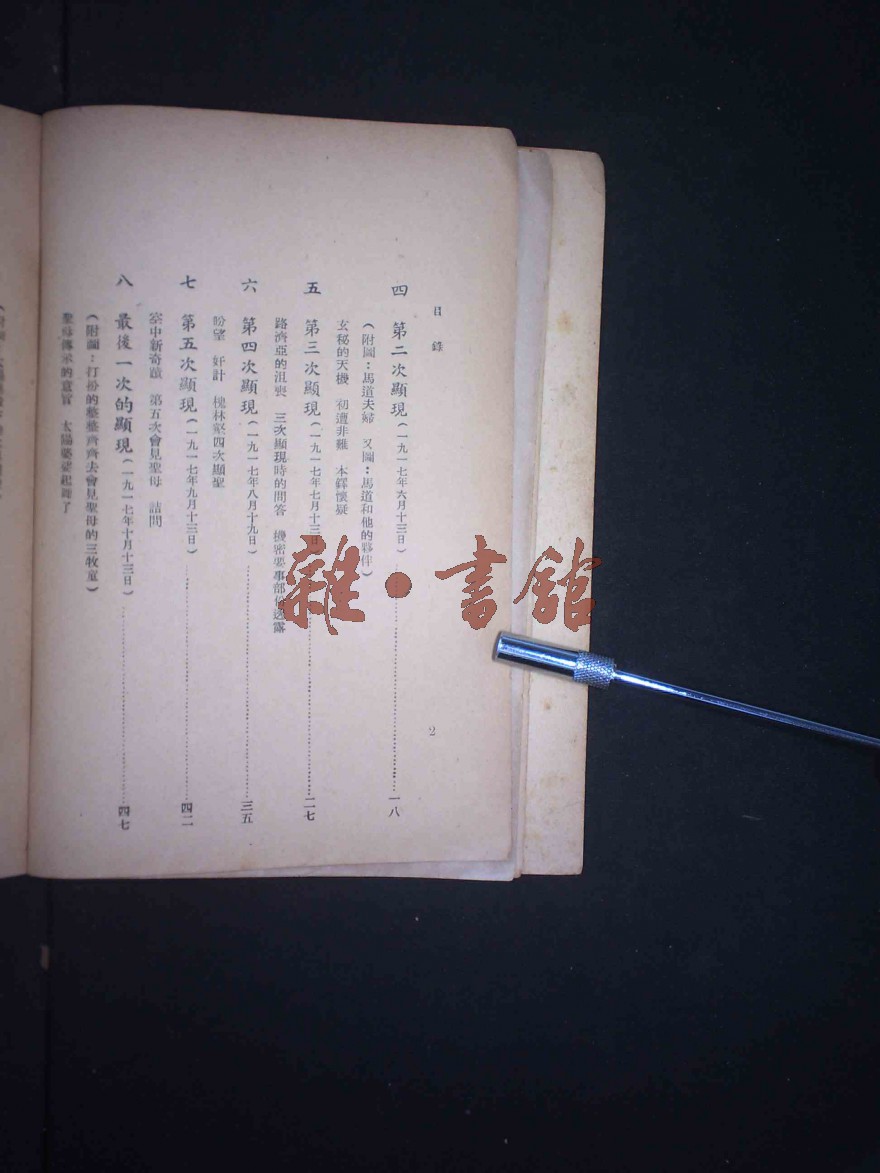 目錄
2
四 第二次顯現(一九一七年六月十三日)……一八
(附圖:馬道夫婦 又圖:馬道和他的夥伴)
玄秘的天機 初遭非難 本鐸懷疑
五 第三次顯現(一九一七年七月十三日)……二七
路濟亞的沮喪 三次顯現時的問答 機密要事部份透露
六 第四次顯現(一九一七年八月十九日)……三五
盼望 奸計 槐林墅四次顯聖
七 第五次顯現(一九一七年九月十三日)……四二
空中新奇蹟 第五次會見聖母 詰問
八 最後一次的顯現(一九一七年十月十三日)……四七
(附圖:打扮的整整齊齊去會見聖母的三牧童)
聖母傳示的意旨 太陽婆娑起舞了
雜·書館